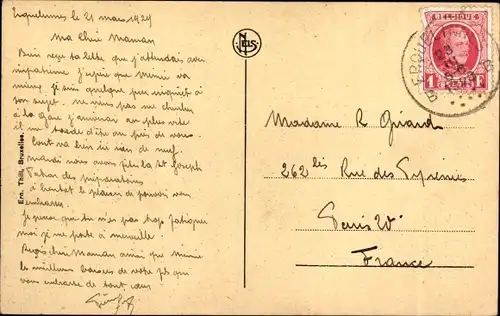 le 21 mars 1929
Ma chère Maman
Bien reçu ta lettre que j'attendais avec
impatience j'espère que Mémée va
mieux je suis quelque peu inquiet à
son sujet. ne viens pas me chercher
à la gare j'arriverai au plus vite
et me tarde d'être au près de vous.
tout va bien ici rien de neuf.
mardi nous avons fêté la St Joseph
Patron des
à bientôt le plaisir de pouvoir vous
embrasser.
Je pense que tu n'es pas trop fatiguée
moi je me porte à merveille.
Reçois chère Maman ainsi que Mémée
le meilleurs baisers de votre fils qui
vous embrasse de tout cœur
Ern. Thill, Bruxelles.
NELS
BELGIQUE
1 F
Madame R Girard
262 bis Rue des Pyrénées
Paris XX
France